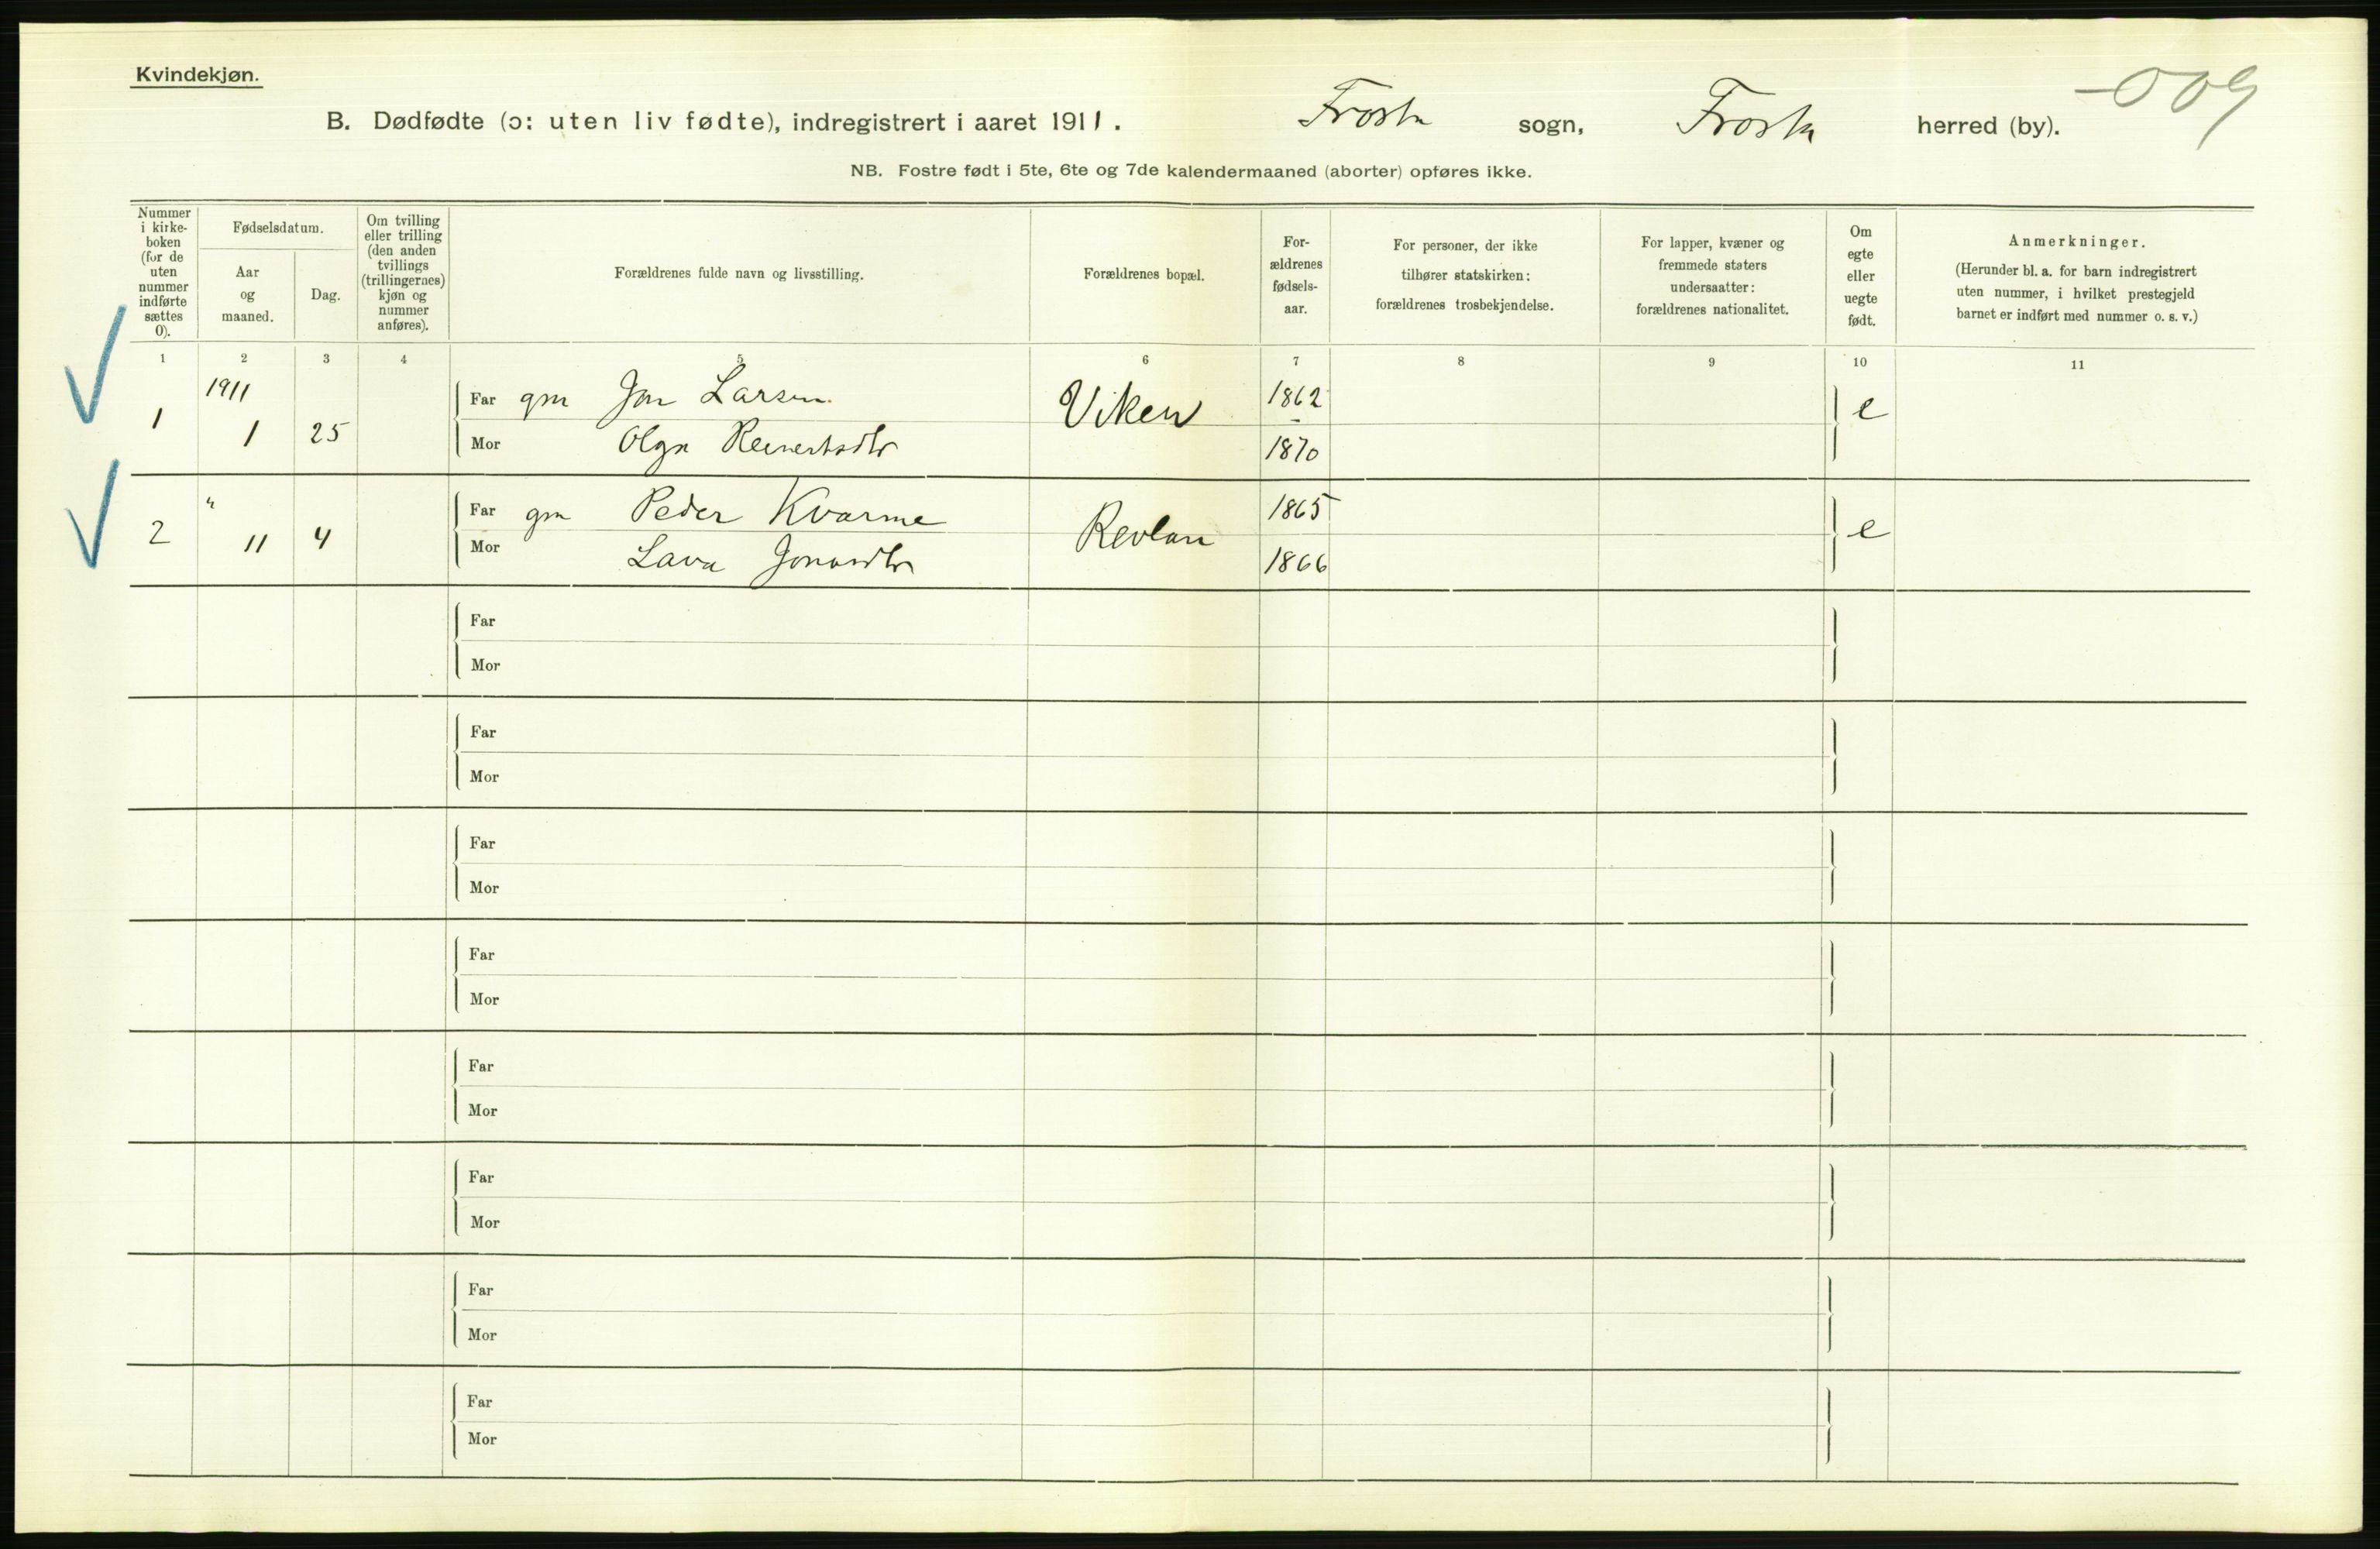 Kvindekjøn.
B. Dødfødte (ɔ: uten liv fødte), indregistrert i aaret 1911. Frosta sogn, Frosta herred (by).
-009
NB. Fostre født i 5te, 6te og 7de kalendermaaned (aborter) opføres ikke.
Nummer
i kirke-
boken
(for de
uten
nummer
indførte
sættes
0).
Fødselsdatum.
Aar
og
maaned.
Dag.
Om tvilling
eller trilling
(den anden
tvillings
(trillingernes)
kjøn og
nummer
anføres).
Forældrenes fulde navn og livsstilling.
Forældrenes bopæl.
For-
ældrenes
fødsels-
aar.
For personer, der ikke
tilhører statskirken:
forældrenes trosbekjendelse.
For lapper, kvæner og
fremmede staters
undersaatter:
forældrenes nationalitet.
Om
egte
eller
uegte
født.
Anmerkninger.
(Herunder bl. a. for barn indregistrert
uten nummer, i hvilket prestegjeld
barnet er indført med nummer o. s. v.)
1 2 3 4 5 6 7 8 9 10 11
1911
1 1 25
Far gm Jon Larsen
Mor Olga Reinertsdtr
Viken
1862
1870
e
2 " 11 4
Far gm Peder Kvarme
Mor Lava Jonasdtr
Revlan
1865
1866
e
Far
Mor
Far
Mor
Far
Mor
Far
Mor
Far
Mor
Far
Mor
Far
Mor
Far
Mor